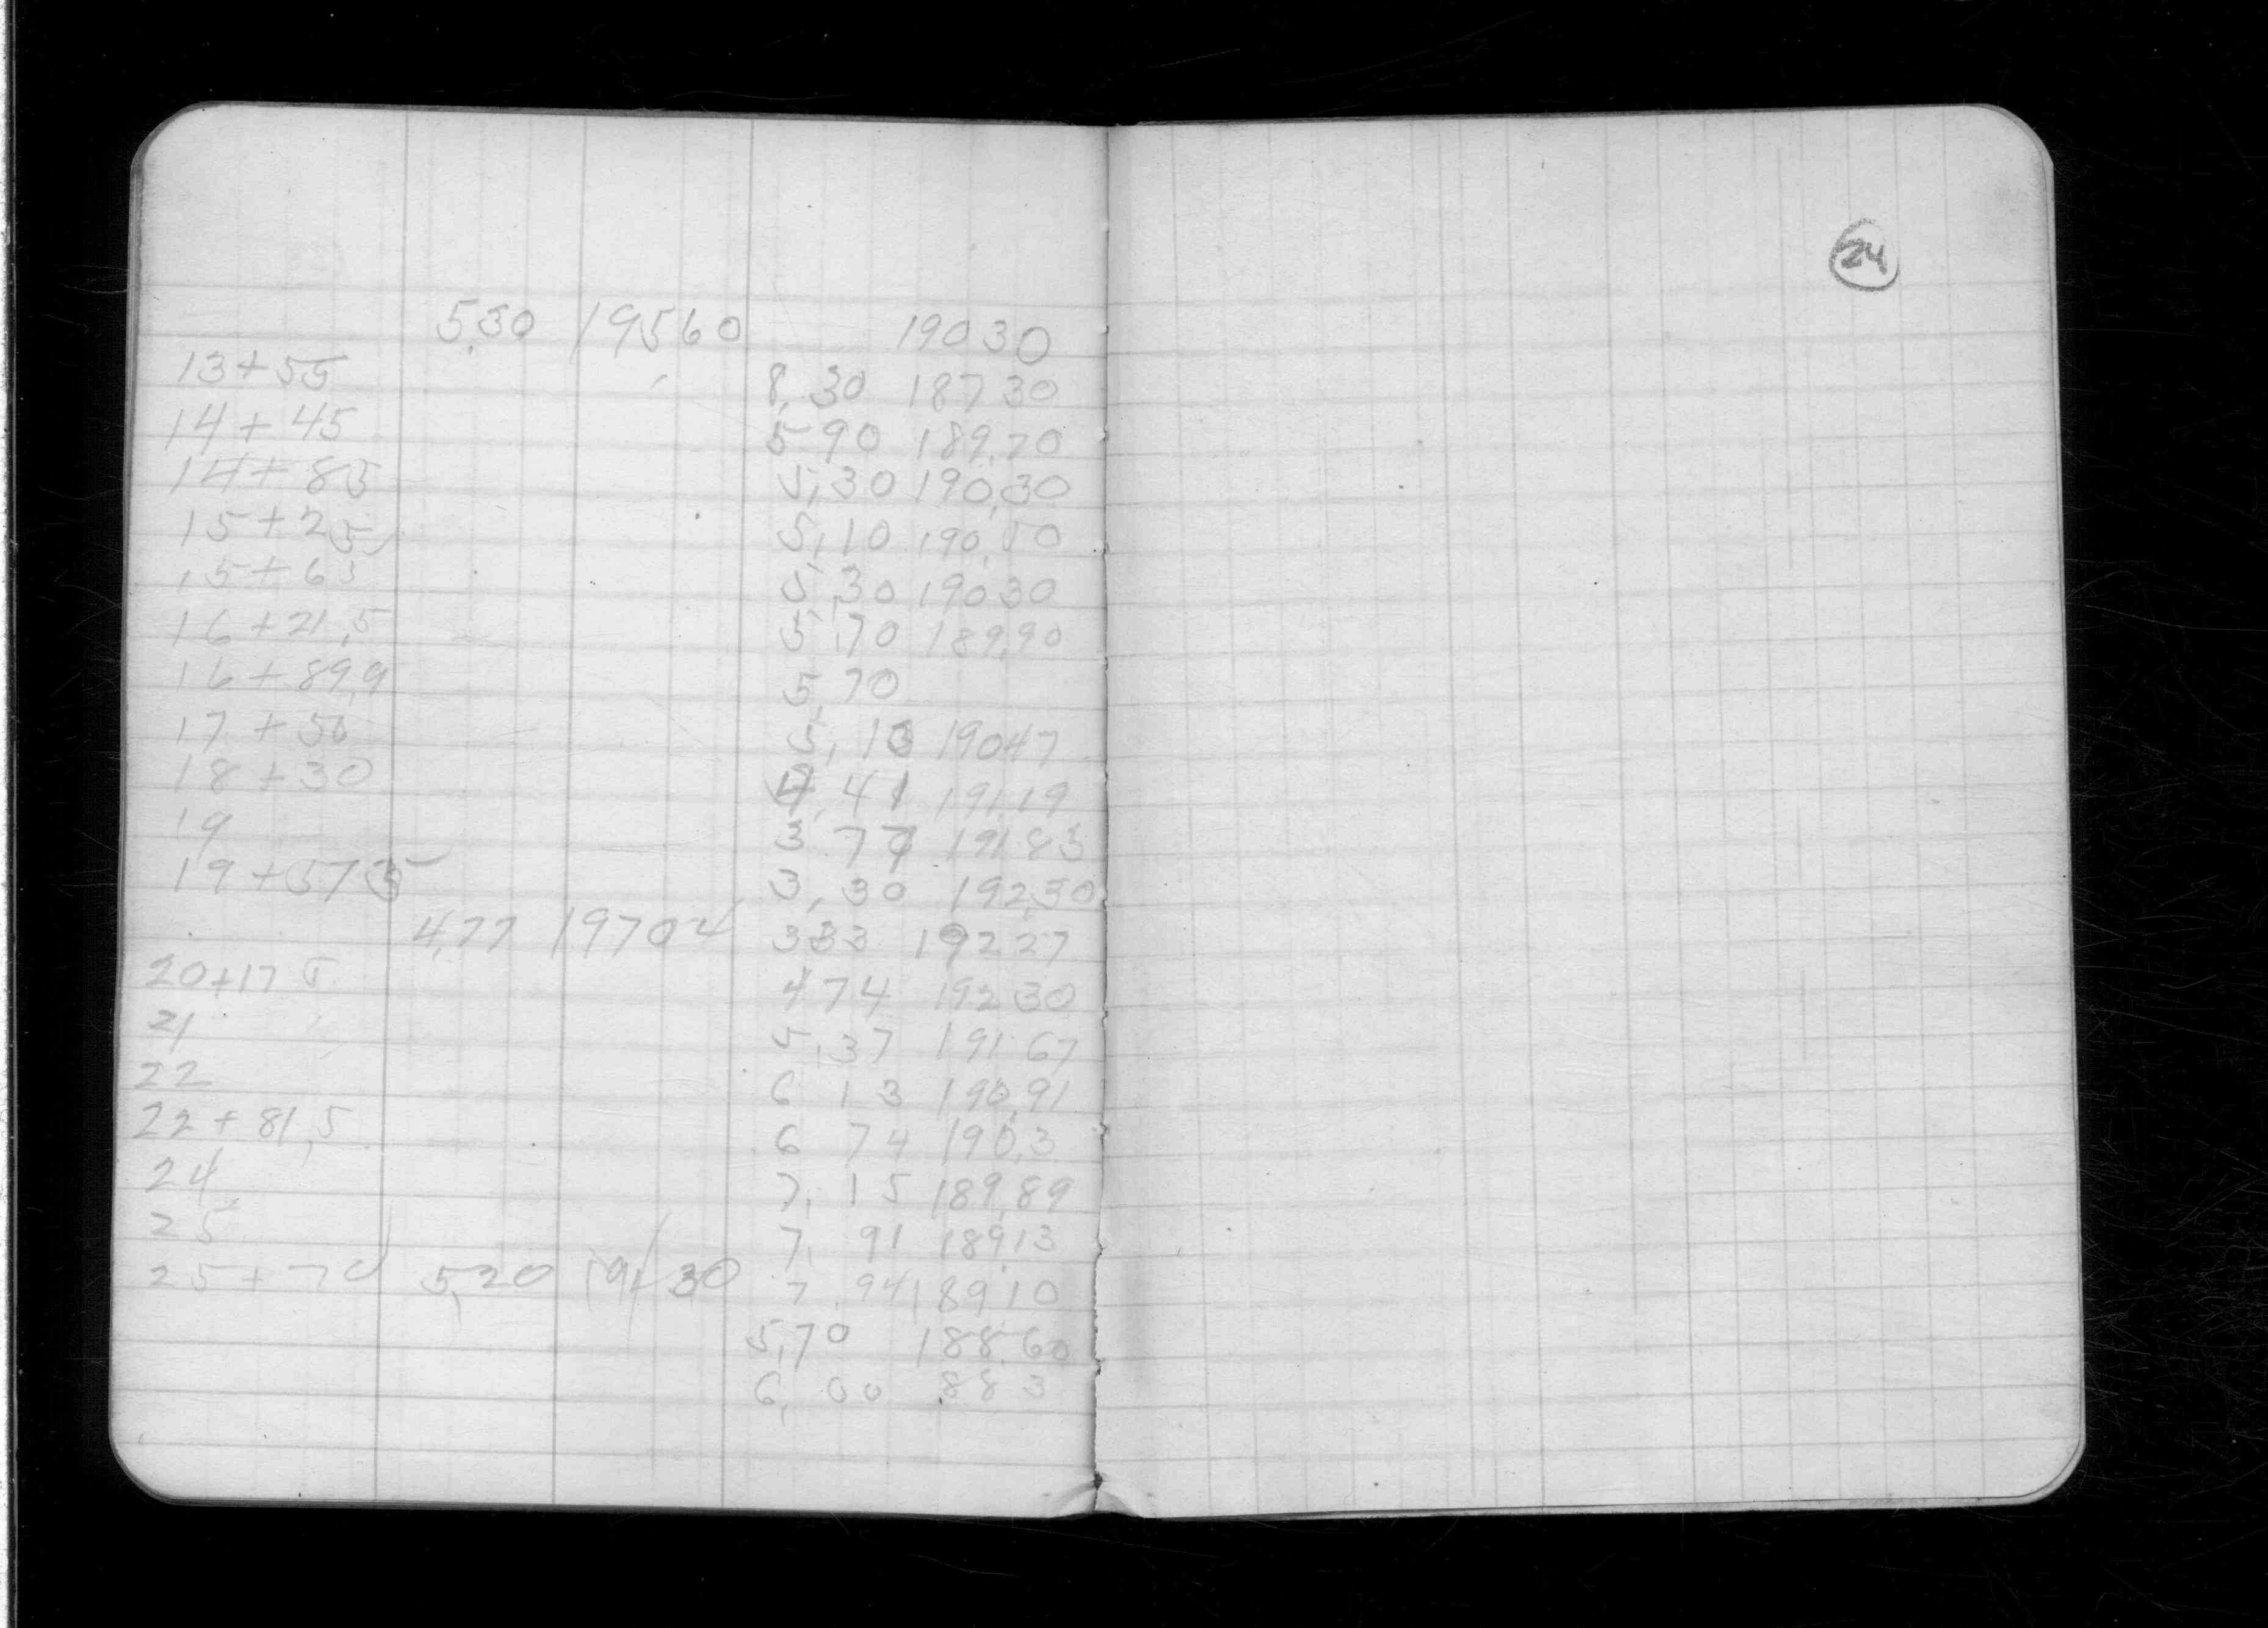 5,30 19560 19030
13+55 8,30 18730
14+45 5 90 189,70
14+85 5,30 190,30
15+25 5,10 190,50
15+65 5 30 19030
16+21,5 5 70 189,90
16+89,9 5,70
17+50 5,13 19047
18+30 4,41 191,19
19 3 77 191 83
19+575 3,30 192,30
4,77 19704 333 19227
20+17 5 4 74 192 30
21 5,37 191 67
22 6 13 190,91
22+81,5 6 74 190,3
24 7,15 189,89
25 7,91 189,13
25+70 5,20 191 30 7,94 189,10
5,70 188,60
6,00 88 3
24